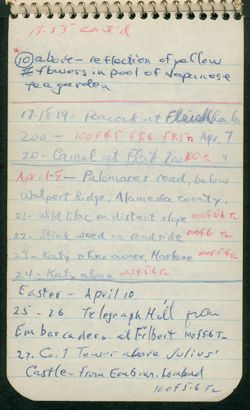 13-53 cont'd
10 above - reflection of yellow
flowers in pool of Japanese
tea garden
17-18-19 - Peacock at Fleishhacker
Zoo - 100 f4.5 f5.6 f4.5 Tu Apr. 7
20 - Camel at Fleish Zoo 100 Tu 4
Apr. 1-8 - Palomares road, below
Walpert Ridge, Alameda county.
21 - Wild lilac on distant slope 100 f5.6 Tu
22 - Stink weed on roadside 100 f6 Tu
23 - Katy & her owner, Hortone 100 f5.6 Tu
24 - Katy alone 100 f5.6 Tu
Easter - April 10
25 - 26 Telegraph Hill from
Embarcadero at Filbert 100 f5.6 Tu
27. Coit Tower above Julius'
Castle - from Embar. Lombard
100 f5.6 Tu